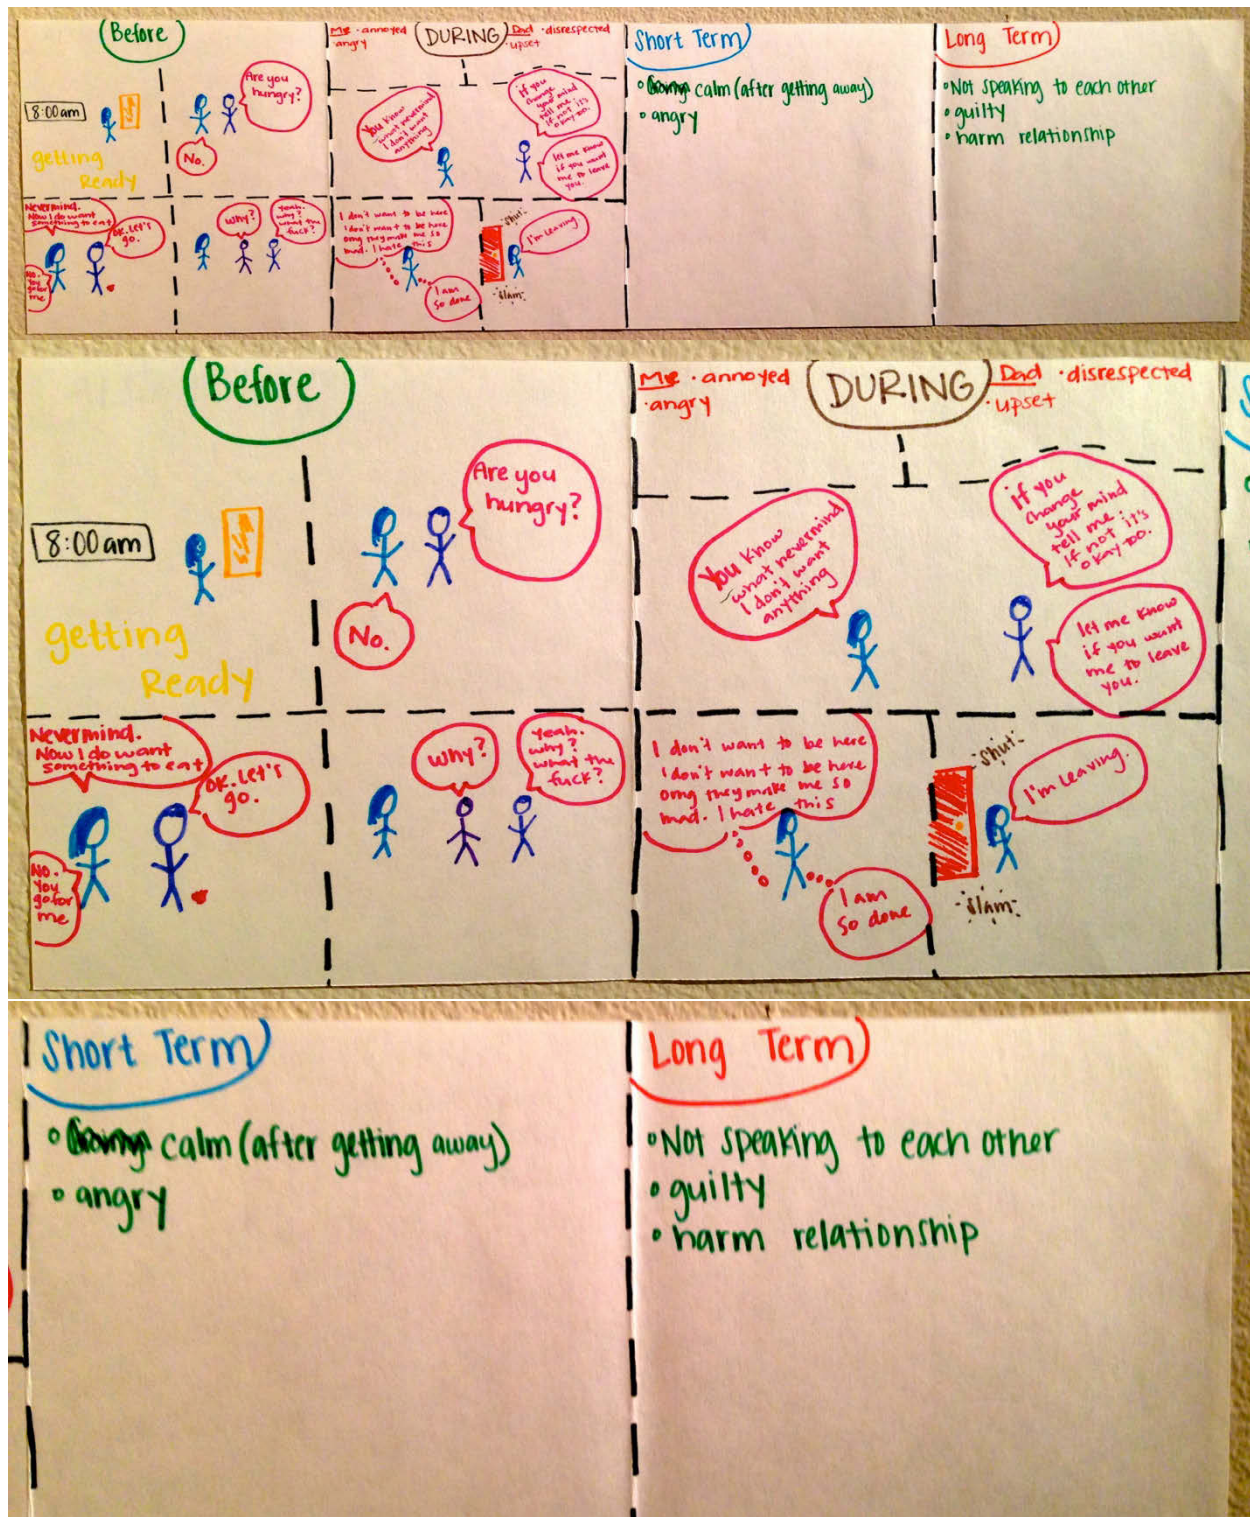 Before
8:00am
getting
Ready
Are you
hungry?
No.
Nevermind.
Now I do want
something to eat
OK. Let's
go.
No.
You
go for
me
Why?
Yeah.
why?
what the
fuck?
Me · annoyed
· angry
DURING
Dad · disrespected
· upset
You know
what nevermind
I don't want
anything
If you
change
your mind
tell me.
if not it's
okay too.
let me know
if you want
me to leave
you.
I don't want to be here
I don't want to be here
omg they make me so
mad. I hate this
I am
so done
Shut
I'm leaving.
slam
Short Term
calm (after getting away)
angry
Long Term
Not speaking to each other
guilty
harm relationship
Before
8:00am
getting
Ready
Are you
hungry?
No.
Nevermind.
Now I do want
something to eat
OK. Let's
go.
No.
You
go for
me
Why?
Yeah.
why?
what the
fuck?
Me · annoyed
· angry
DURING
Dad · disrespected
· upset
You know
what nevermind
I don't want
anything
If you
change
your mind
tell me.
if not it's
okay too.
let me know
if you want
me to leave
you.
I don't want to be here
I don't want to be here
omg they make me so
mad. I hate this
I am
so done
Shut
I'm leaving.
slam
Short Term
calm (after getting away)
angry
Long Term
Not speaking to each other
guilty
harm relationship